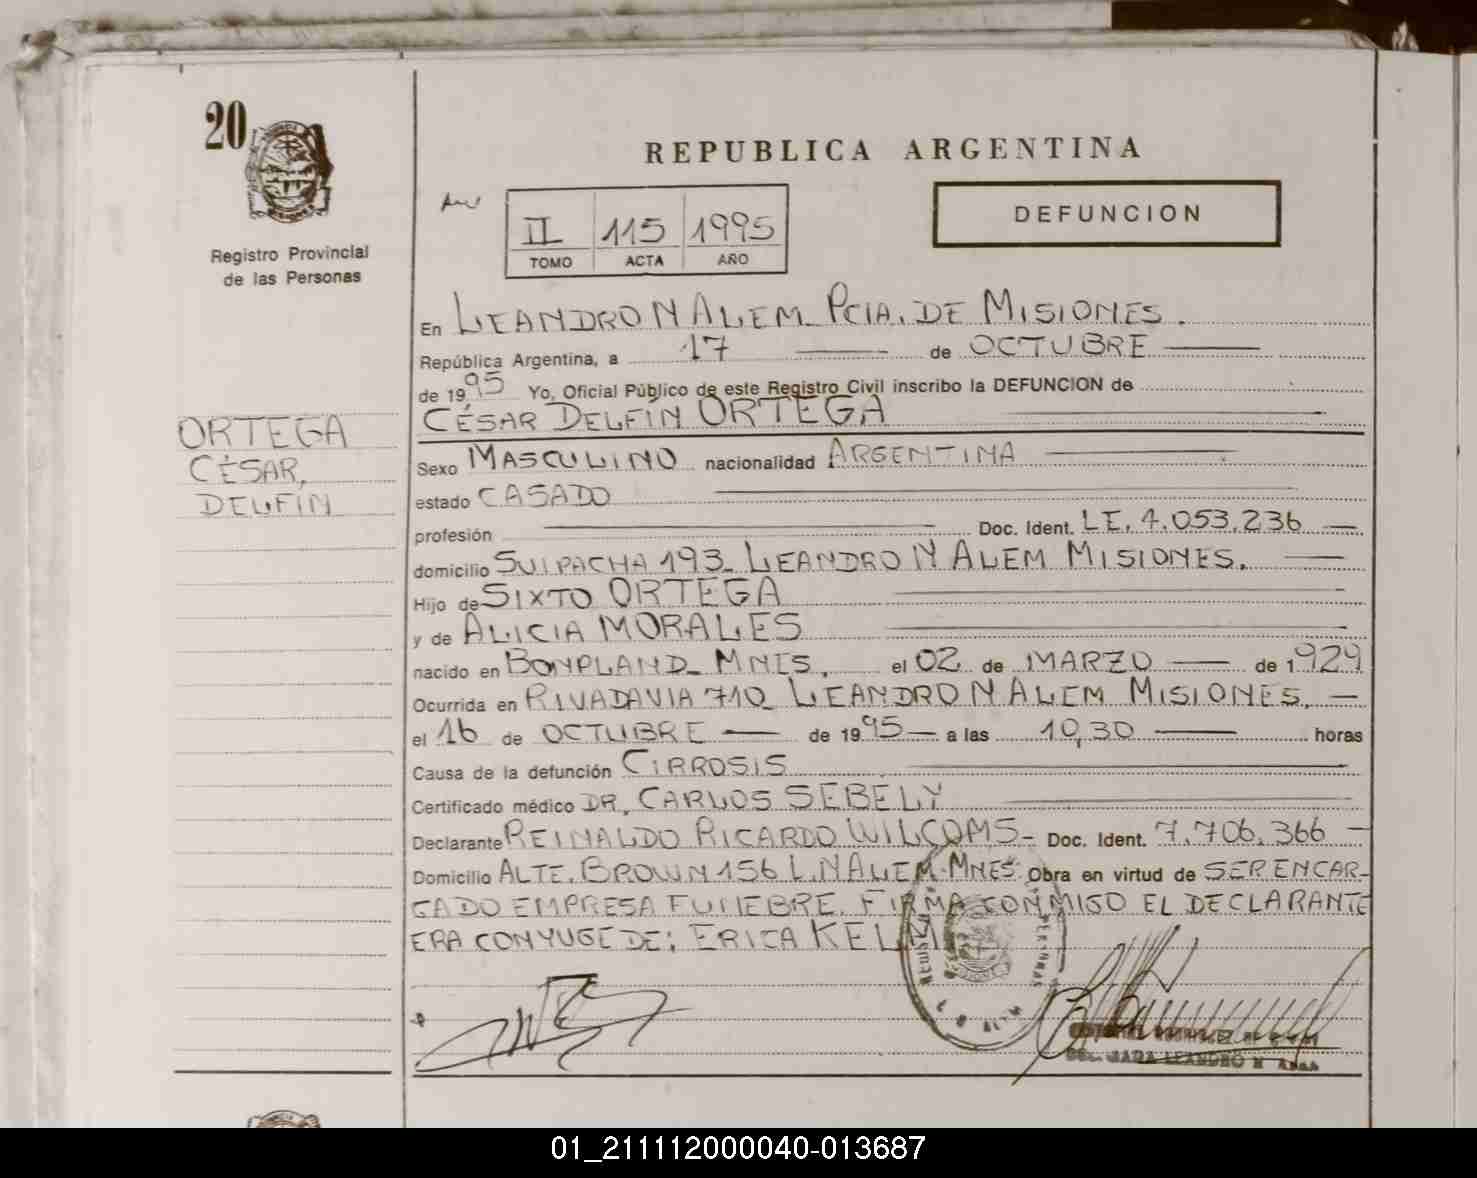 20
Registro Provincial
de las Personas
ORTEGA
CÉSAR,
DELFIN
REPUBLICA ARGENTINA
DEFUNCION
II 115 1995
TOMO ACTA AÑO
En LEANDRO N ALEM PCIA. DE MISIONES.
República Argentina, a 17 de OCTUBRE
de 1995 Yo, Oficial Público de este Registro Civil inscribo la DEFUNCION de
CÉSAR DELFÍN ORTEGA
Sexo MASCULINO nacionalidad ARGENTINA
estado CASADO
profesión Doc. Ident. LE. 7.053.236
domicilio SUIPACHA 193_ LEANDRO N ALEM MISIONES.
Hijo de SIXTO ORTEGA
y de ALICIA MORALES
nacido en BONPLAND_ MNES. el 02 de MARZO de 1929
Ocurrida en RIVADAVIA 710_ LEANDRO N ALEM MISIONES.
el 16 de OCTUBRE de 1995 a las 10,30 horas
Causa de la defunción CIRROSIS
Certificado médico DR. CARLOS SEBELY
Declarante REINALDO RICARDO WILCOMS- Doc. Ident. 7.706.366
Domicilio ALTE. BROWN 156 L.N ALEM-MNES. Obra en virtud de SER ENCAR-
GADO EMPRESA FUNEBRE. FIRMA CONMIGO EL DECLARANTE
ERA CONYUGE DE: ERICA KELM
01_211112000040-013687